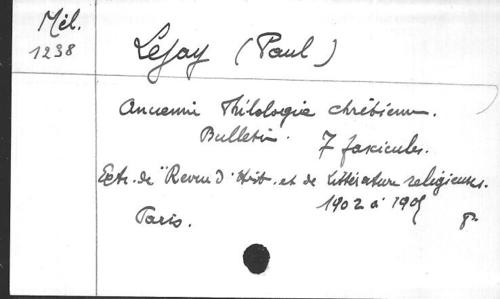 Mél.
1238
Lejay (Paul)
Ancienne Philologie chrétienne.
Bulletin. 7 fascicules.
Extr. de "Revue d'Hist. et de Littérature religieuses.
1902 à 190
Paris. 8°